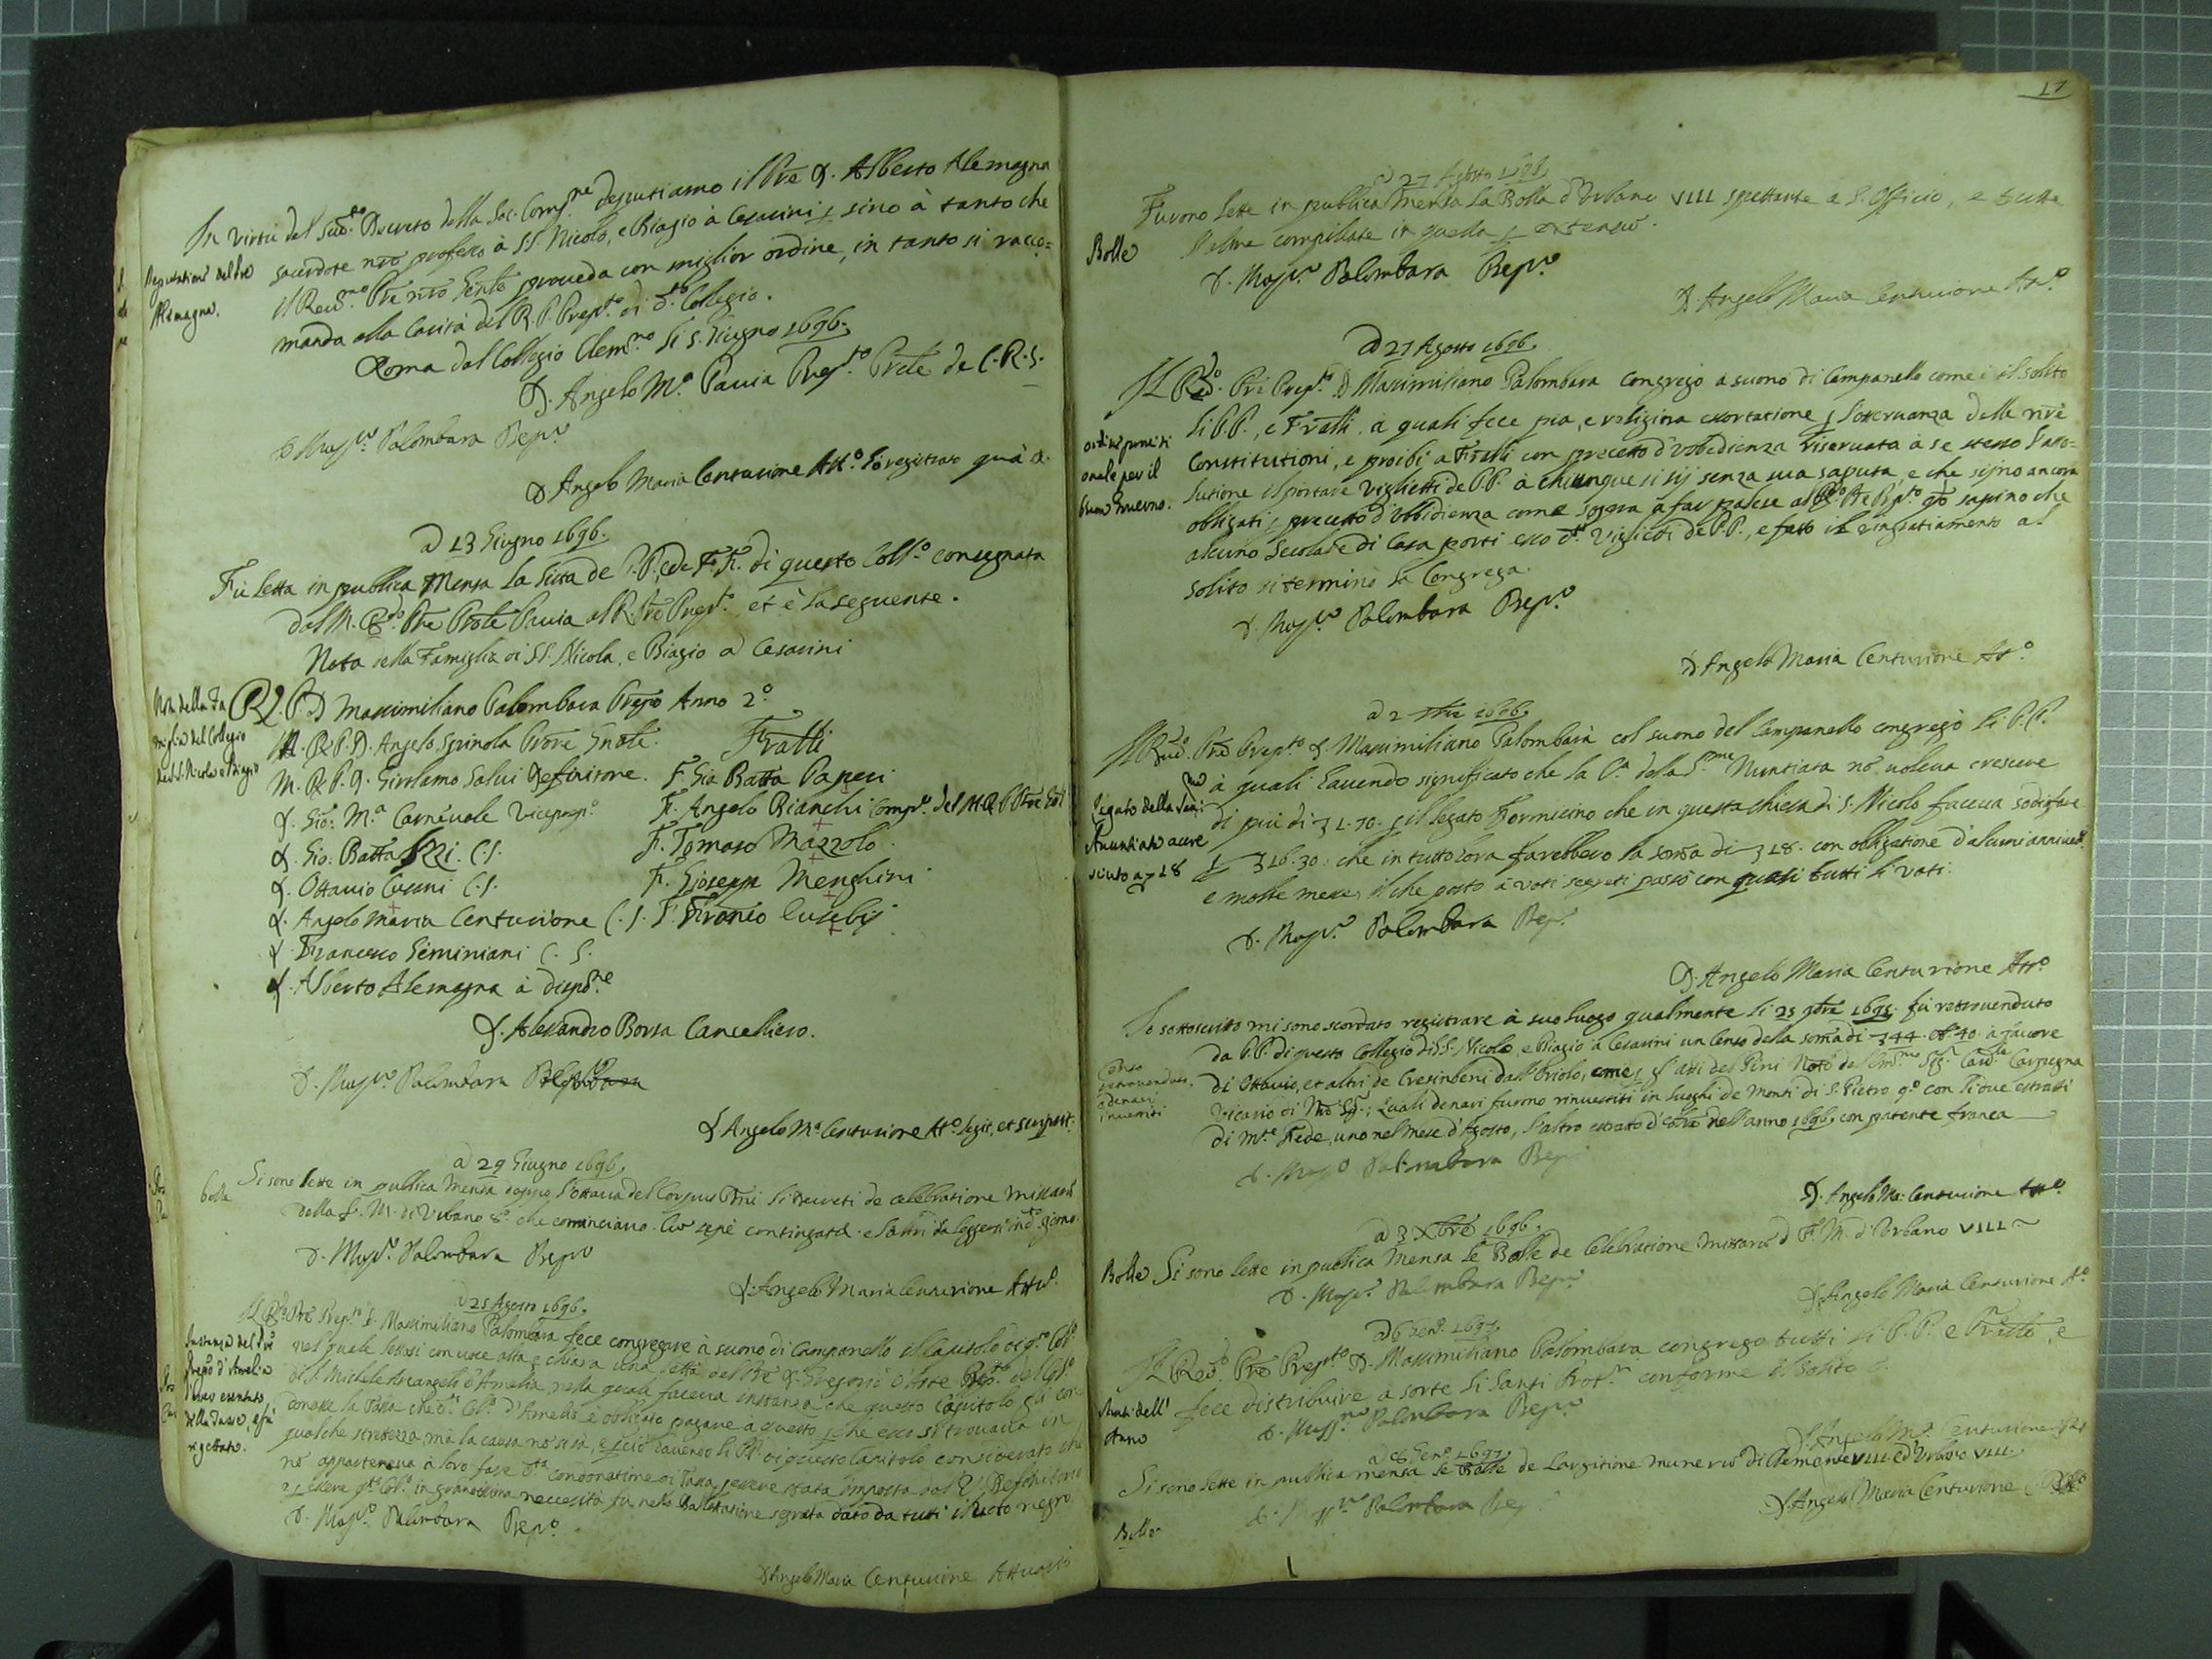 In virtù del sud.to Decreto della Sac. Cong.ne deputiamo il Pre D. Alberto Alemagna
Deputatione del Pre
Alemagna.
sacerdote nro professo à SS. Nicolò, e Biagio à Cesarini sino à tanto che
il Reu.mo Pre nro Genle proueda con miglior ordine, in tanto si racco=
manda alla Carità del R. P. Prep.to di d.to Collegio.
Roma dal Collegio Clem.no li 5. Giugno 1696.
D. Angelo M.a Pauia Prep.to Prãle de C. R. S.
D. Mass.no Palombara Prep.to
D. Angelo Maria Centurione Att.o hò registrato quà
A 13 Giugno 1696.
Fù letta in publica Mensa la lista de P.P. e de F.F. di questo Coll.o consegnata
dal M. R.do Pre Prãle Pauia al R. Pre Prep.to, et è la seguente.
Nota della Famiglia di SS. Nicola, e Biagio a Cesarini
Nota della Fa
miglia del Collegio
de SS. Nicola e Biagio
R. P. D. Massimiliano Palombara Prep.o Anno 2.o
M. R. P. D. Angelo Spinola Prore Gnãle.
M. R. P. D. Girolamo Salui Definitore.
D. Gio: M.a Carneuale Viceprep.o
D. Gio: Batta C. S.
D. Ottauio Cusani C. S.
D. Angelo Maria Centurione C. S.
D. Francesco Geminiani C. S.
D. Alberto Alemagna à dispo.ne
Fratelli
F. Gio Batta Paperi
F. Angelo Bianchi Comp.o del M. R. P. Pre Gnl
F. Tomaso Mazzolo
F. Gioseppe Menghini
F. Franco Eusebij
D. Alesandro Borsa Cancelliero.
D. Mass.o Palombara
D. Angelo M.a Centurione Att.o legit, et scripsit.
A 29 Giugno 1696.
bolla
Si sono lette in publica Mensa doppo l'ottaua del Corpus Dni li decreti de celebratione missarũ
della F. M. di Vrbano 8.o che cominciano. Cum sepè contingat. e l'altri da leggersi in d.to giorno.
D. Mass.o Palombara Prep.o
D. Angelo Maria Centurione Att.o
A 25 Agosto 1696.
Il R.do Pre Prep.to D. Massimiliano Palombara fece congregare à suono di Campanello il Capitolo di q.o Col.o
Instanza del Pre
Prep.o d'Amelia
d'esser esentato
della Tassa, e fù
rigettato.
nel quale lessesi con uoce alta e chiara una lettã del Pre D. Gregorio Prep.to del Col.o
di S. Michele Arcangelo d'Amelia, nella quale faceua instanza che questo Capitolo gli con
donasse la Tassa che d.o Col.o d'Amelia è obligato pagare à questo, che essi si trouaua in
qualche strettezza, mà la causa nõ si sà, e perciò hauendo li PP. di questo Capitolo considerato che
nõ apparteneua à loro fare d.ta condonatione di Tassa essere stata imposta dal V. Definitorio
e essere q.to Col.o in grandissima neccessità fu nella ballottatione segreta dato da tutti il uoto negro.
D. Mass.o Palombara Prep.o
D. Angelo Maria Centurione Attuario
17
A 27 Agosto 1696
Furono lette in publica Mensa la Bolla d'Urbano VIII spettante a S. Officio, e tutte
Bolle
l'altre compilate in quella extenso.
D. Mass.o Palombara Prep.o
D. Angelo Maria Centurione Att.o
A 27 Agosto 1696.
Il R.do Pre Prep.to D. Massimiliano Palombara congregò a suono di Campanello come è il solito
li P.P., e Fratelli, à quali fece pia, e religiosa essortatione l'osseruanza delle nre
ordine
per il
buon Gouerno.
Constitutioni, e proibì a Fratelli con precetto d'vbidienza riseruata à se stesso l'asso=
lutione il portare Viglietti de P.P. à chiunque si sij senza sua saputa, e che sijno ancora
obligati, precetto d'vbbidienza come sopra à far palese al R.do Pre Prep.to qdo sapino che
alcuno Secolare di Casa porti esso d.ti Viglietti de P.P., e fatto il ringratiamento al
solito si terminò la Congrega.
D. Mass.o Palombara Prep.o
D. Angelo Maria Centurione Att.o
A 2 1696.
Il Reu.do Pre Prep.to D. Massimiliano Palombara col suono del Campanello congregò li P.P.
à quali hauendo significato che la C.a della S.ma Nuntiata nõ uoleua crescere
Legato della SS.ma
Anuntiata accre
sciuto a 18
di più di 1.70. il legato Formicino che in questa chiesa di S. Nicolo faceua sodisfare
16.30. che in tutto hora farebbero la soma di 18. con obligatione d'alcuni anniuer.
e molte messe, il che posto à voti segreti passò con quasi tutti li voti.
D. Mass.o Palombara Prep.o
D. Angelo Maria Centurione Att.o
Io sottoscritto mi sono scordato registrare à suo luogo qualmente li 25 9bre 1695. fù retrouenduto
da P.P. di questo Collegio di SS. Nicolò, e Biagio à Cesarini un Censo della soma di 344. 40. à fauore
Censo
retrouenduto,
e denari
inuestiti
di Ottauio, et altri de Cresimbeni dall'Oriolo, come gl'atti del Pini Noto dell'Em.mo Sig.r Card.le Carpegna
Vicario di Nro Sig.re; quali denari furono rinuestiti in Luoghi de Monti di S. Pietro 9.o con li due estratti
di M.te Fede, uno nel mese d'Agosto, l'altro estratto d' nell'anno 1696. con patente franca
D. Mass.o Palombara Prep.o
D. Angelo Ma: Centurione Att.o
A 3 Xbre 1696.
Bolle Si sono lette in publica Mensa le Bolle de Celebratione missarũ d F. M. d'Vrbano VIII
D. Mass.o Palombara Prep.o
D. Angelo Maria Centurione At.o
A 6 Gen.o 1697.
Il Reu.do Pre Prep.to D. Massimiliano Palombara congregò tutti li P.P. e Fratelli, e
Santi dell'
Anno
fece distribuire à sorte li Santi Prot.ri conforme il solito
D. Mass.no Palombara Prep.o
D. Angelo M.a Centurione
A 8 Gen.o 1697.
Si sono lette in publica mensa le Bolle de Largitione munerum di Clemente VIII. e d'Vrbano VIII.
Bolle
D. Mass.no Palombara Prep.
D. Angelo Maria Centurione